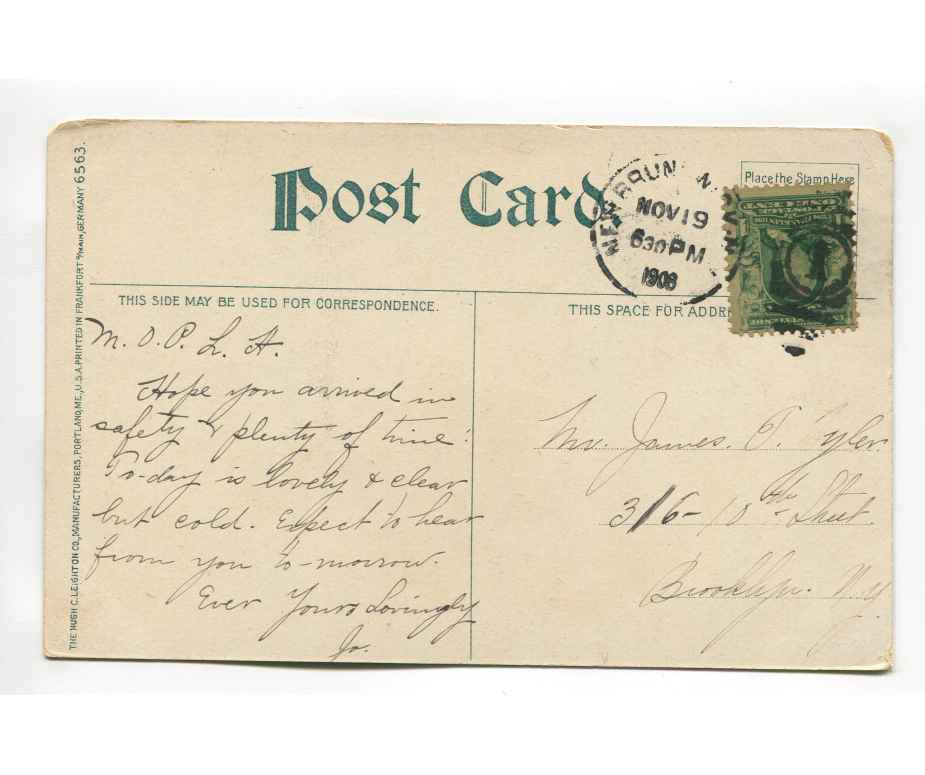 THE HUGH C. LEIGHTON CO., MANUFACTURERS, PORTLAND, ME., U.S.A. PRINTED IN FRANKFORT º/MAIN, GERMANY 6563.
Post Card
Place the Stamp Here
NEW BRUN W
NOV 19
630 PM
1908
THIS SIDE MAY BE USED FOR CORRESPONDENCE.
M. O. P. L. A.
Hope you arrived in
safety & plenty of time.
To-day is lovely & clear
but cold. Expect to hear
from you to-morrow.
Ever Yours Lovingly
Jo.
THIS SPACE FOR ADDR
Mr. James.
316- 10th Street.
Brooklyn. N.Y.